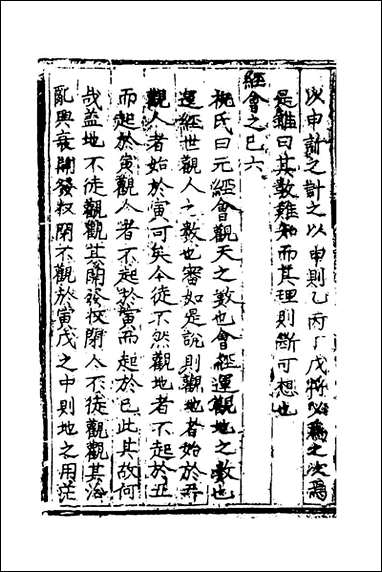 以申計之計之以申則乙丙丁戊將以爲之次焉
是雖曰其數難知而其理則斷可想也
經會之巳六
祝氏曰元經會觀天之數也會經運觀地之數也
運經世觀人之數也審如是說則觀地者始於丑
觀人者始於寅可矣今徒不然觀地者不起於丑
而起於寅觀人者不起於寅而起於巳此其故何
哉盖地不徒觀觀其開發收閉人不徒觀觀其治
亂興衰開發收閉不觀於寅戌之中則地之用茫